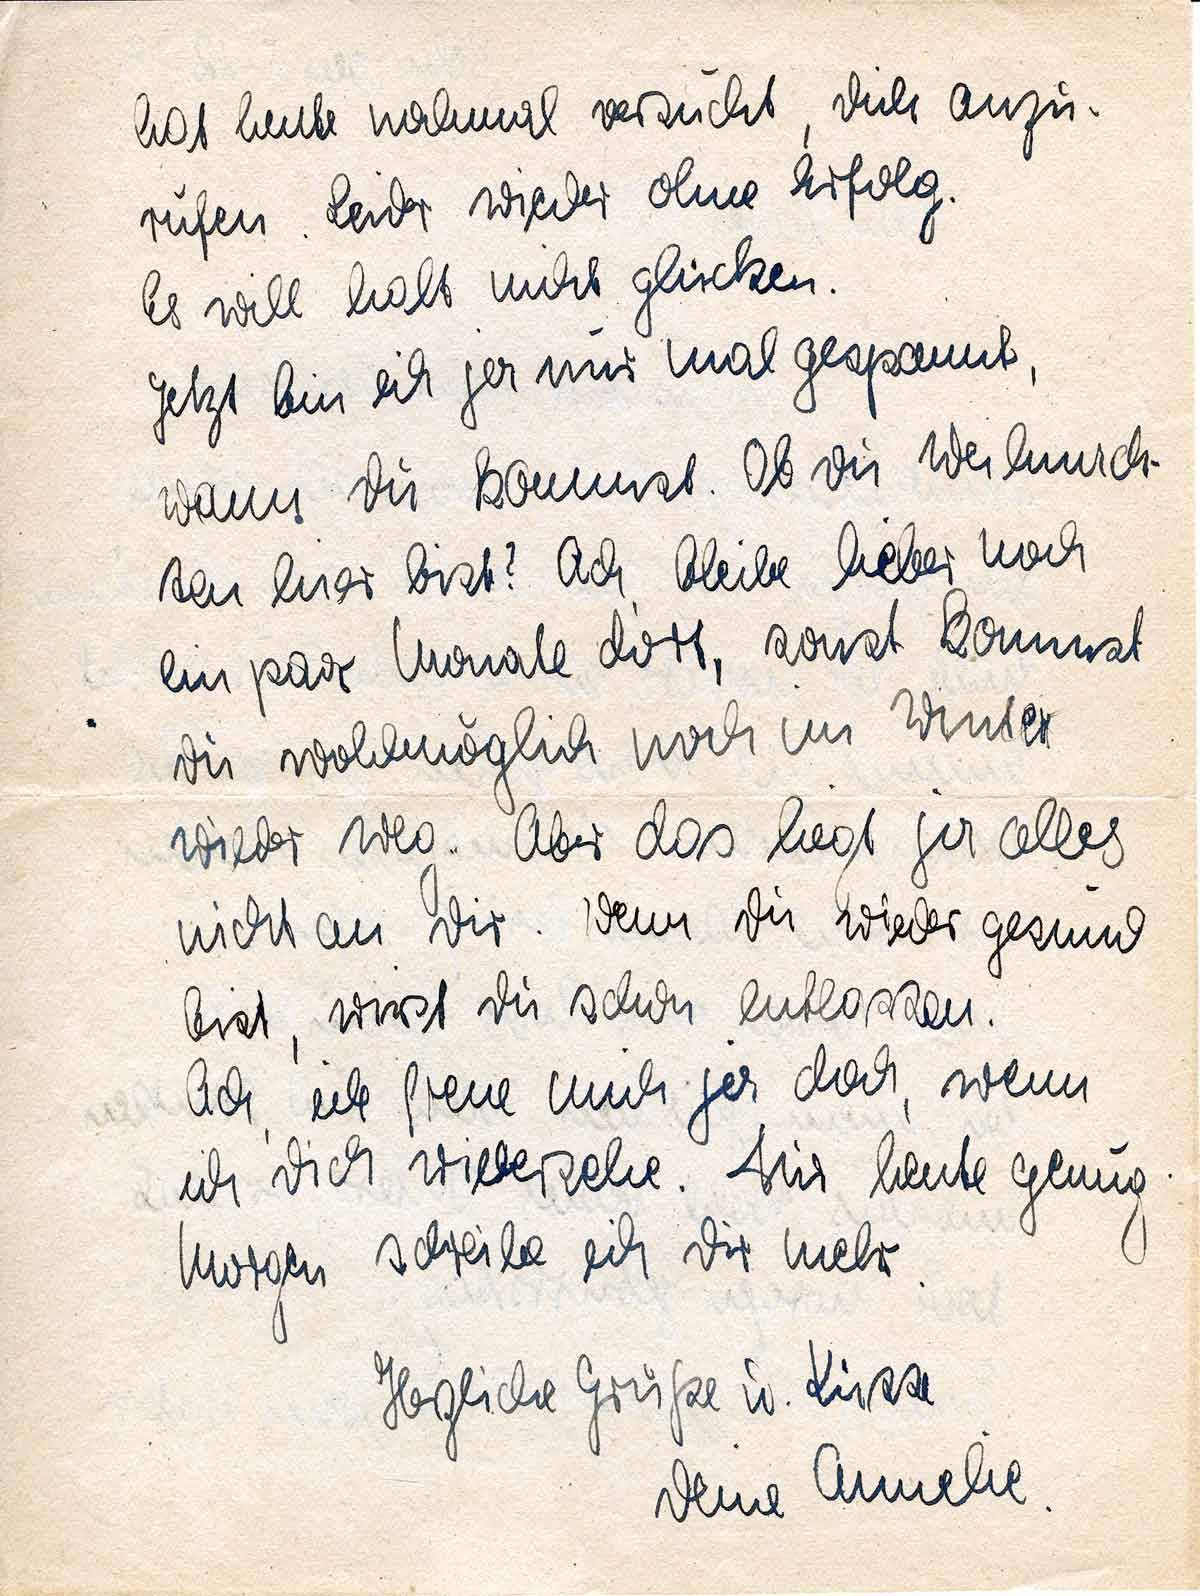 hat heute nochmal versucht, dich anzu-
rufen. Leider wieder ohne Erfolg.
Es will halt nicht glücken.
Jetzt bin ich ja nur mal gespannt,
wann du kommst. Ob du Weihnach-
ten hier bist? Ach, bleibe lieber noch
ein paar Monate dort, sonst kommst
du wohlmöglich noch im Winter
wieder weg. Aber das liegt ja alles
nicht an Dir. Wenn du wieder gesund
bist, wirst du schon entlassen.
Ach, ich freue mich ja doch, wenn
ich Dich wiedersehe. Für heute genug.
Morgen schreibe ich Dir mehr.
Herzliche Grüße u. Küsse
Deine Annelie.